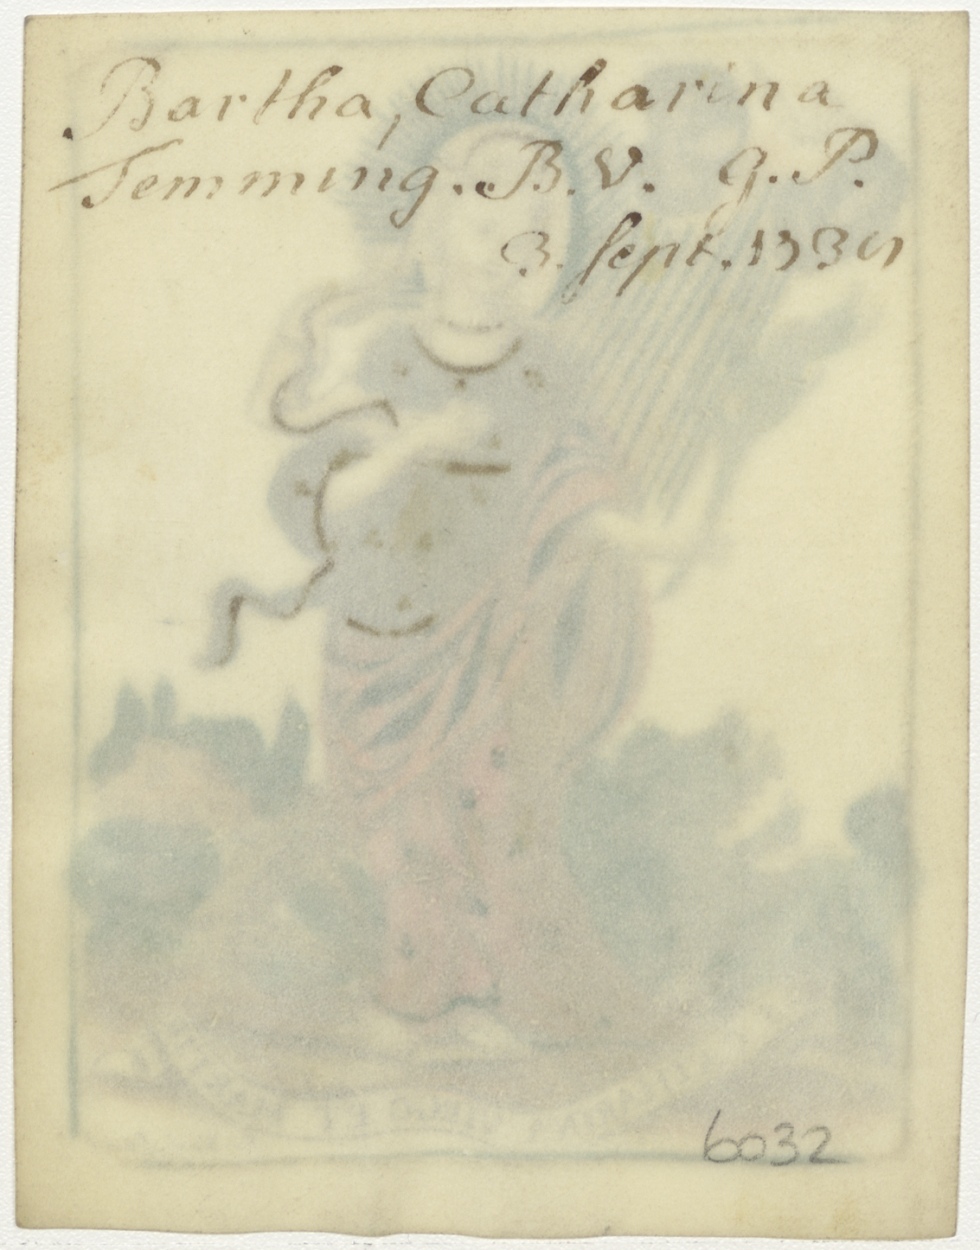 Bartha, Catharina
Temming. B. V. G. P.
3. Sept.
6032